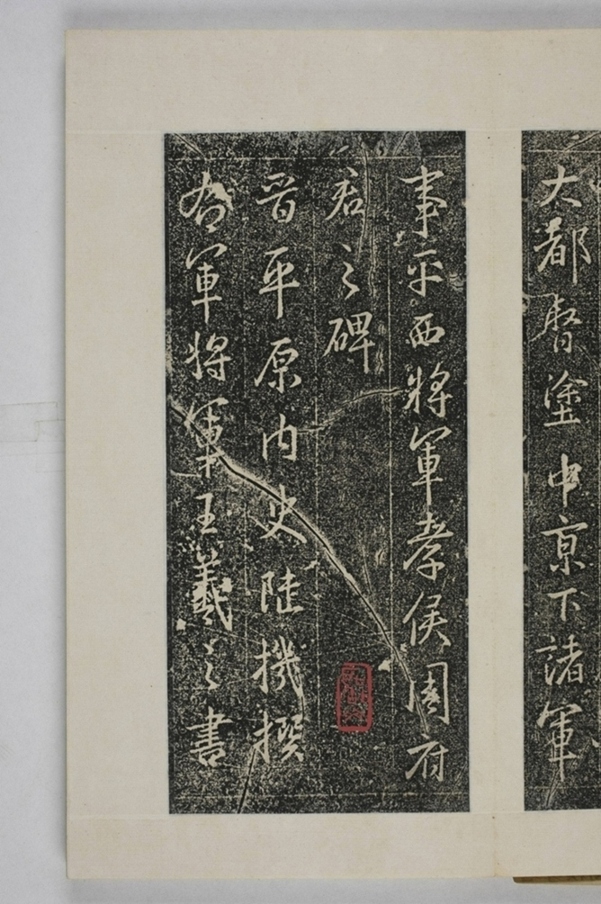 大都督塗中京下諸軍
事平西將軍孝侯周府
君之碑
晉平原內史陸機撰
右軍將軍王羲之書